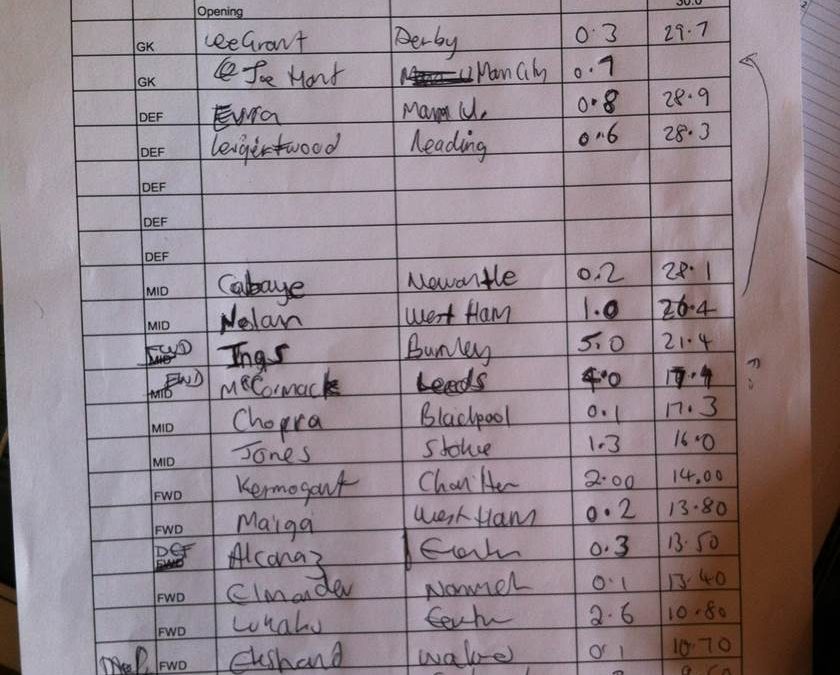 Opening 30.0
GK Lee Grant Derby 0.3 29.7
GK @ Joe Hart Man City 0.7
DEF Evra Man U. 0.8 28.9
DEF Leigertwood Reading 0.6 28.3
DEF
DEF
DEF
MID Cabaye Newcastle 0.2 28.1
MID Nolan West Ham 1.0 26.4
FWD MID Ings Burnley 5.0 21.4
FWD MID McCormack Leeds 4.0 17.4 ??
MID Chopra Blackpool 0.1 17.3
MID Jones Stoke 1.3 16.0
FWD Kermogant Charlton 2.00 14.00
FWD Maiga West Ham 0.2 13.80
DEF FWD Alcaraz Everton 0.3 13.50
FWD Elmander Norwich 0.1 13.40
FWD Lukaku Everton 2.6 10.80
FWD 0.1 10.70